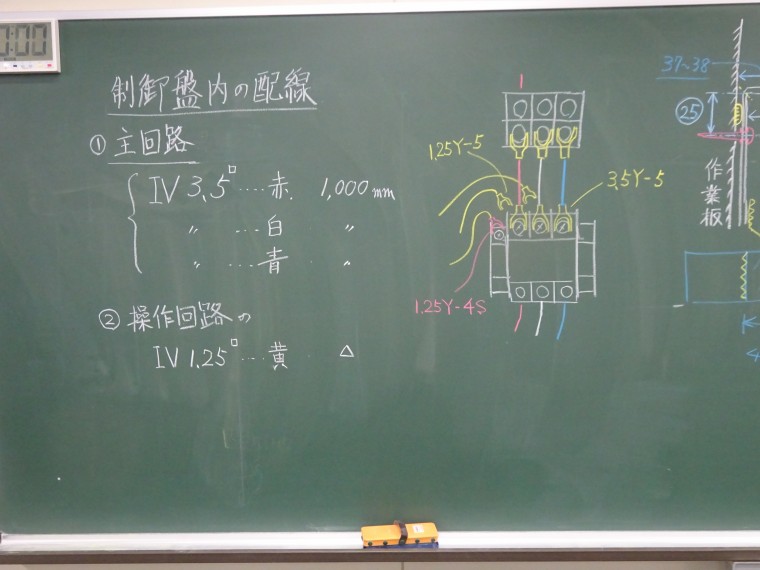 :00
制御盤内の配線
① 主回路
IV 3.5□ ‥‥ 赤. 1,000 mm
〃 ‥‥ 白 〃
〃 ‥‥ 青 〃
② 操作回路の
IV 1.25□ ‥‥ 黄 △
1.25Y-5
3.5Y-5
1.25Y-4S
37~38
25
作業板